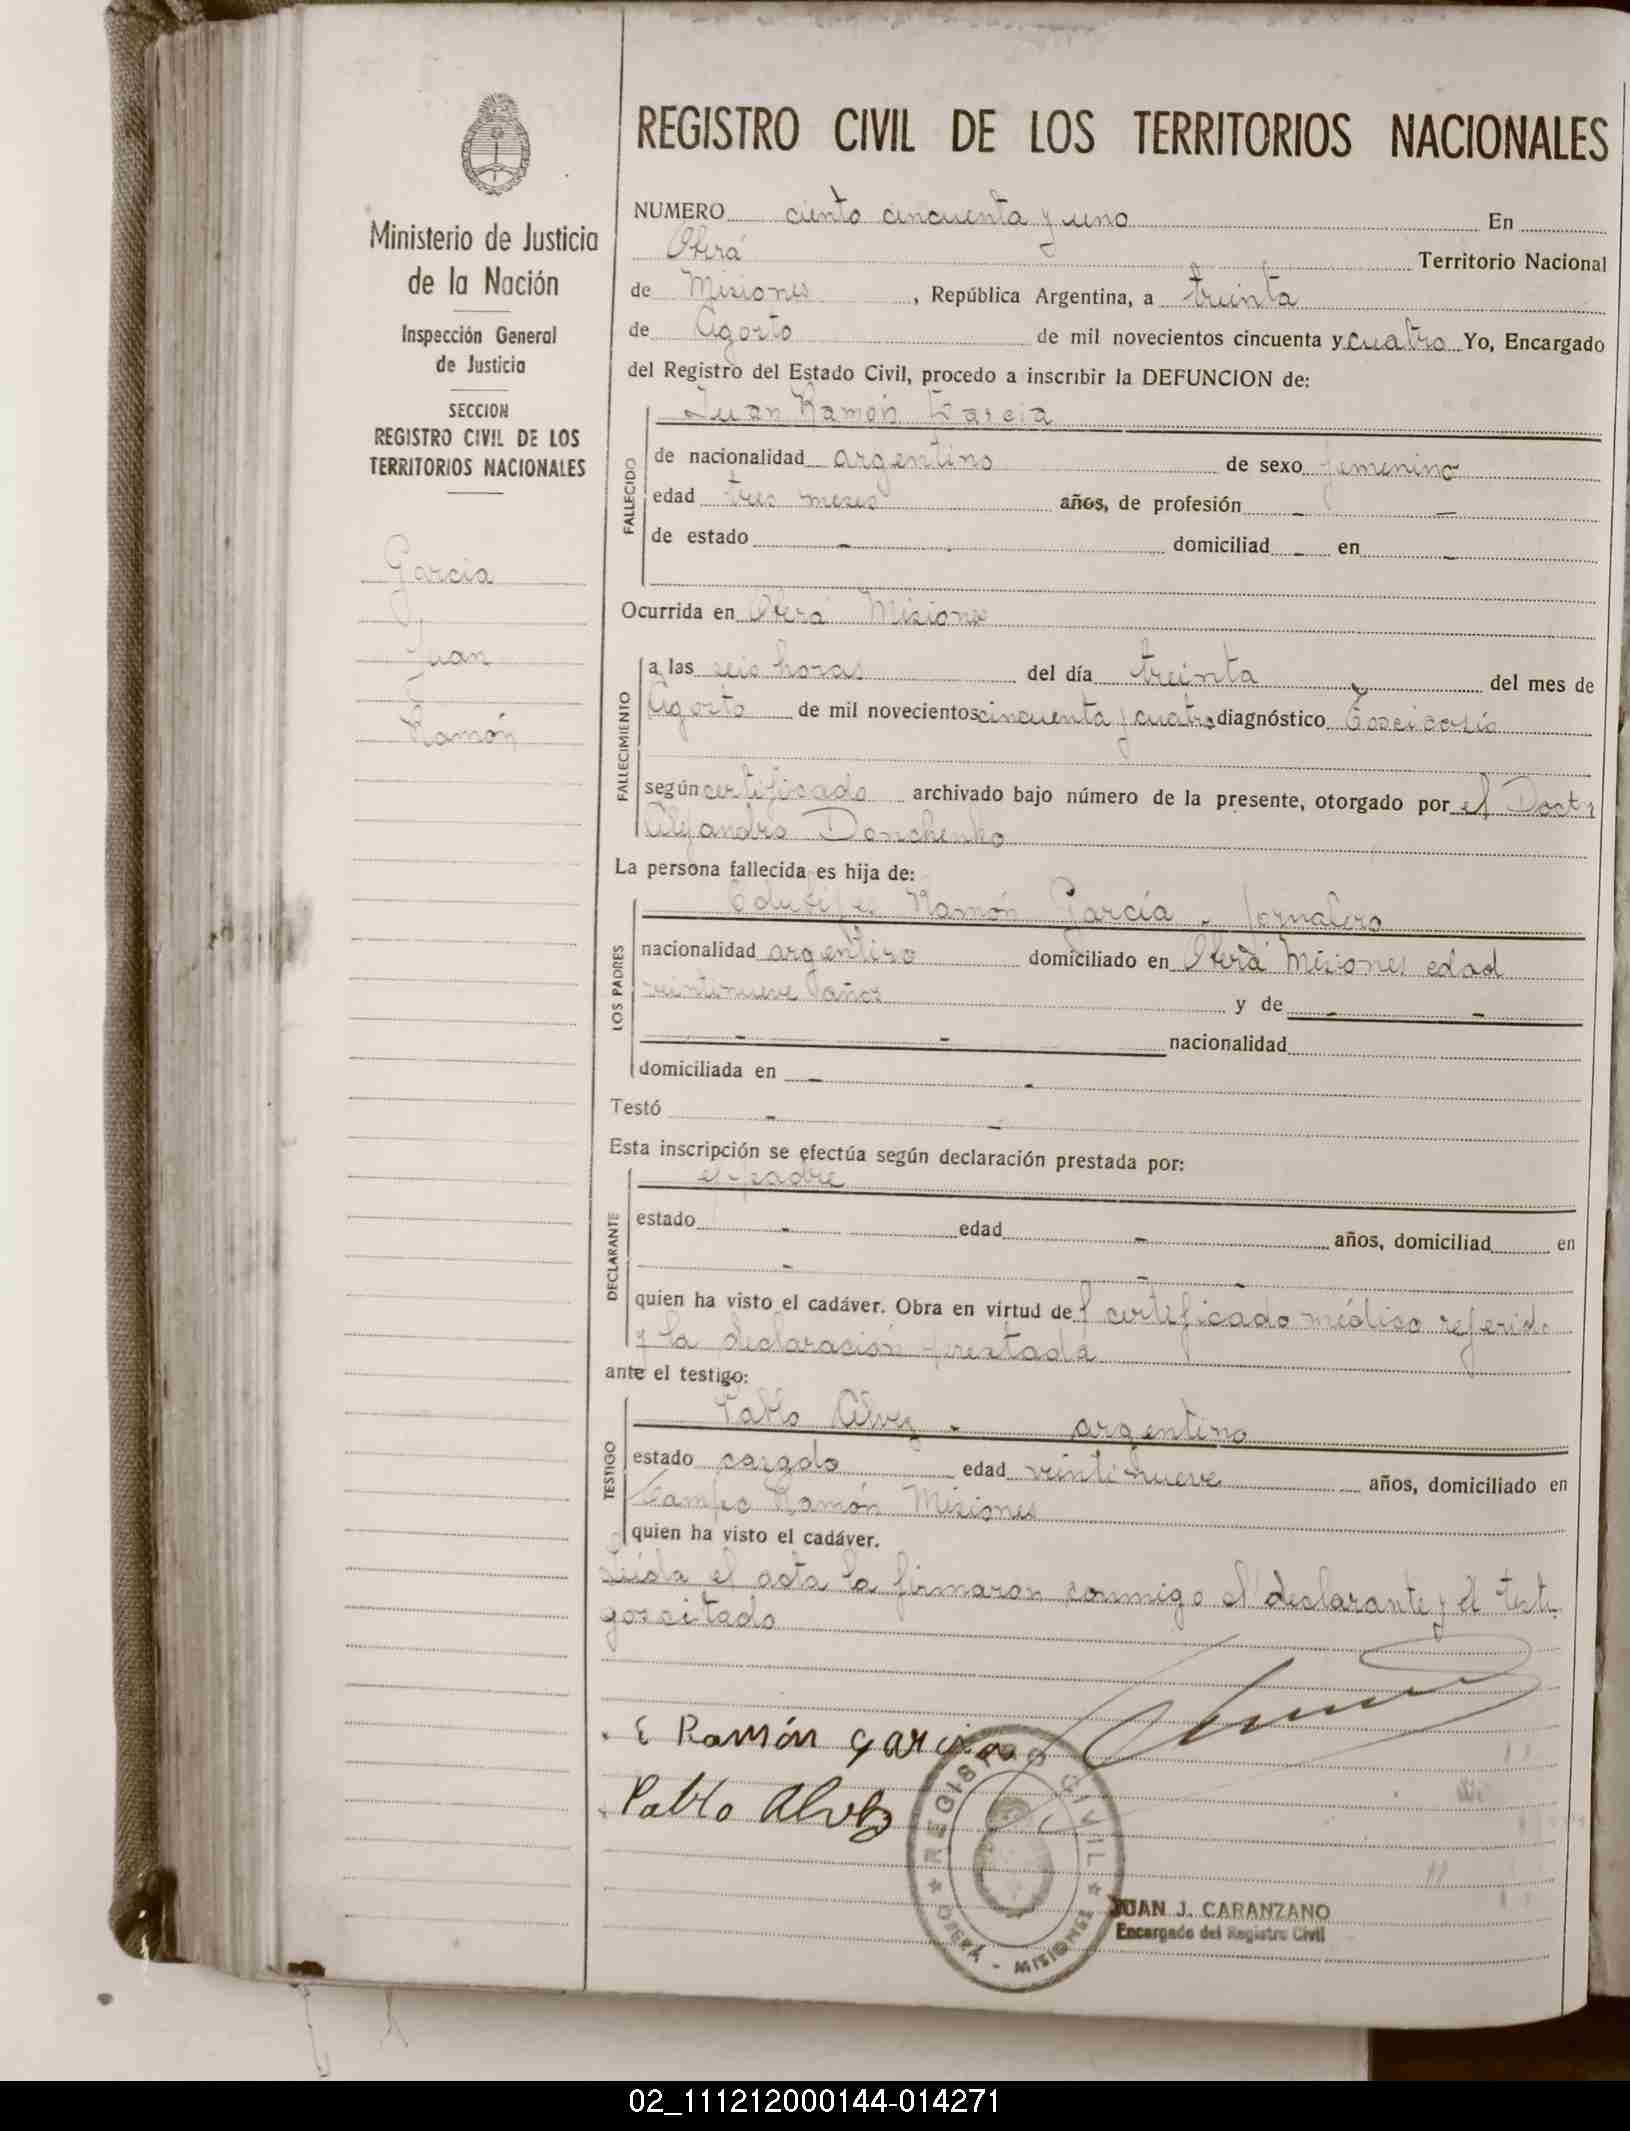 Ministerio de Justicia
de la Nación
Inspección General
de Justicia
SECCION
REGISTRO CIVIL DE LOS
TERRITORIOS NACIONALES
Garcia
Juan
Ramón
REGISTRO CIVIL DE LOS TERRITORIOS NACIONALES
NUMERO ciento cincuenta y uno En
Oberá Territorio Nacional
de Misiones , República Argentina, a treinta
de Agosto de mil novecientos cincuenta y cuatro Yo, Encargado
del Registro del Estado Civil, procedo a inscribir la DEFUNCION de:
Juan Ramón Garcia
FALLECIDO
de nacionalidad argentino de sexo femenino
edad tres meses años, de profesión - -
de estado - domiciliad - en -
Ocurrida en Oberá Misiones
FALLECIMIENTO
a las seis horas del día treinta del mes de
Agosto de mil novecientos cincuenta y cuatro diagnóstico
según certificado archivado bajo número de la presente, otorgado por el Doctr
Alejandro Donchenko
La persona fallecida es hija de:
LOS PADRES
Ramón García - Jornalero
nacionalidad argentino domiciliado en Oberá Misiones edad
veintinueve años y de - -
- - nacionalidad
domiciliada en - -
Testó - -
Esta inscripción se efectúa según declaración prestada por:
DECLARANTE
el padre
estado - edad - años, domiciliad en
- - -
quien ha visto el cadáver. Obra en virtud del certificado médico referido
y la declaración prestada
ante el testigo:
TESTIGO
Pablo Alvez - argentino
estado casado edad veintinueve años, domiciliado en
Campo Ramón Misiones
quien ha visto el cadáver.
Leída el acta la firmaron conmigo el declarante y el testi
go citado
E Ramón Garcia
Pablo Alvez
REGISTRO CIVIL
OBERÁ - MISIONES
JUAN J. CARANZANO
Encargado del Registro Civil
02_111212000144-014271